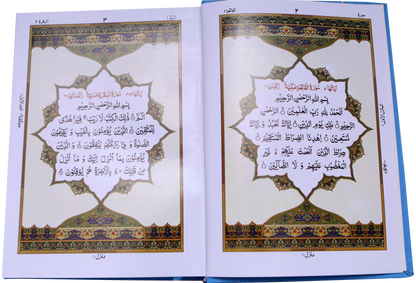 سورة
٢
الفاتحة ١
سُوْرَةُ الْفَاتِحَةِ مَكِّيَّةٌ
بِسْمِ اللهِ الرَّحْمٰنِ الرَّحِيْمِ
اَلْحَمْدُ لِلّٰهِ رَبِّ الْعٰلَمِيْنَ ۝ الرَّحْمٰنِ
الرَّحِيْمِ ۝ مٰلِكِ يَوْمِ الدِّيْنِ ۝ اِيَّاكَ نَعْبُدُ وَ اِيَّاكَ
نَسْتَعِيْنُ ۝ اِهْدِنَا الصِّرَاطَ الْمُسْتَقِيْمَ ۝
صِرَاطَ الَّذِيْنَ اَنْعَمْتَ عَلَيْهِمْ ۝ غَيْرِ
الْمَغْضُوْبِ عَلَيْهِمْ وَ لَا الضَّآلِّيْنَ ۝
منزل ١
٣
البقرة ٢
سُوْرَةُ الْبَقَرَةِ مَدَنِيَّةٌ
بِسْمِ اللهِ الرَّحْمٰنِ الرَّحِيْمِ
الٓمّٓ ۝ ذٰلِكَ الْكِتٰبُ لَا رَيْبَ فِيْهِ هُدًى
لِّلْمُتَّقِيْنَ ۝ الَّذِيْنَ يُؤْمِنُوْنَ بِالْغَيْبِ وَ يُقِيْمُوْنَ
الصَّلٰوةَ وَ مِمَّا رَزَقْنٰهُمْ يُنْفِقُوْنَ ۝ وَ الَّذِيْنَ
يُؤْمِنُوْنَ بِمَآ اُنْزِلَ اِلَيْكَ وَ مَآ اُنْزِلَ
مِنْ قَبْلِكَ وَ بِالْاٰخِرَةِ هُمْ يُوْقِنُوْنَ ۝
منزل ١